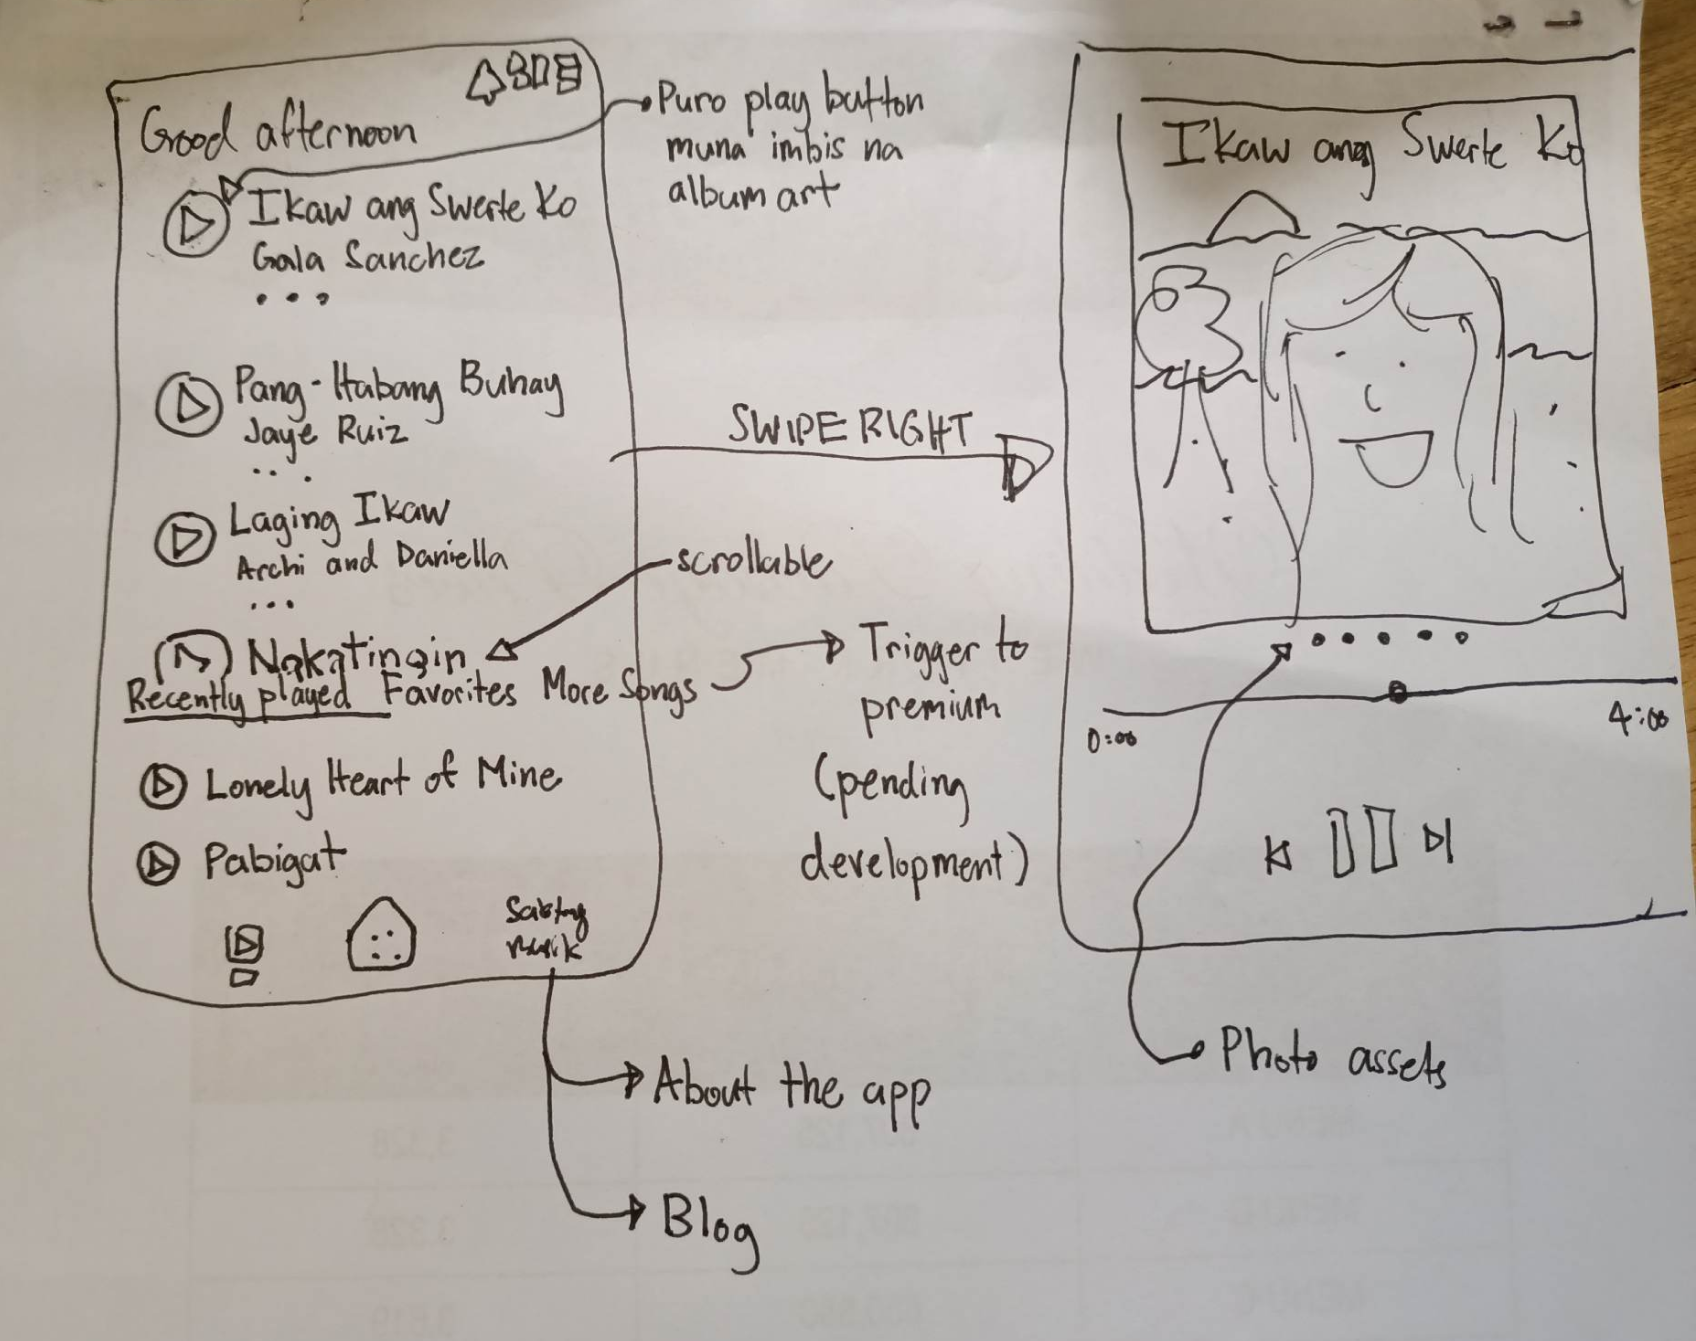 Good afternoon
Ikaw ang Swerte Ko
Gala Sanchez
Pang-Habang Buhay
Jaye Ruiz
Laging Ikaw
Archi and Daniella
Nakatingin
Recently played Favorites More Songs
Lonely Heart of Mine
Pabigat
Puro play button
muna imbis na
album art
SWIPE RIGHT
scrollable
Trigger to
premium
(pending
development)
About the app
Blog
Ikaw ang Swerte Ko
0:00
4:00
Photo assets